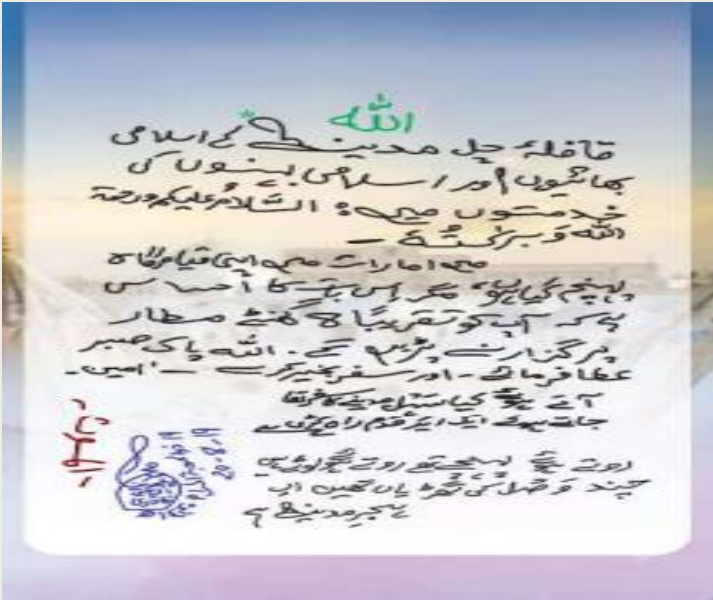 الله
قافلۂ چل مدینہ کے اسلامی
بھائیوں اور اسلامی بہنوں کی
خدمتوں میں: السّلامُ علیکم ورحمۃ
اللہ وَبرَکٰتُہٗ –
میں امارات میں اپنی قیام گاہ
پہنچ گیا ہوں، مگر اس بات کا احساس
ہے کہ آپ کو تقریباً 8 گھنٹے مطار
پر گزارنے پڑیں گے۔ اللہ پاک صبر
عطا فرمائے۔ اور سفر بخیر کرے – اٰمین۔
آتے ہوئے کیا مدینے کا
جاتے ہوئے ایک ایک قدم
روتے ہوئے پہنچے تھے روتے ہوئے
چند وَصْل کی گھڑیاں تھیں اب
ہجرِ مدینہ ہے
20-8-19